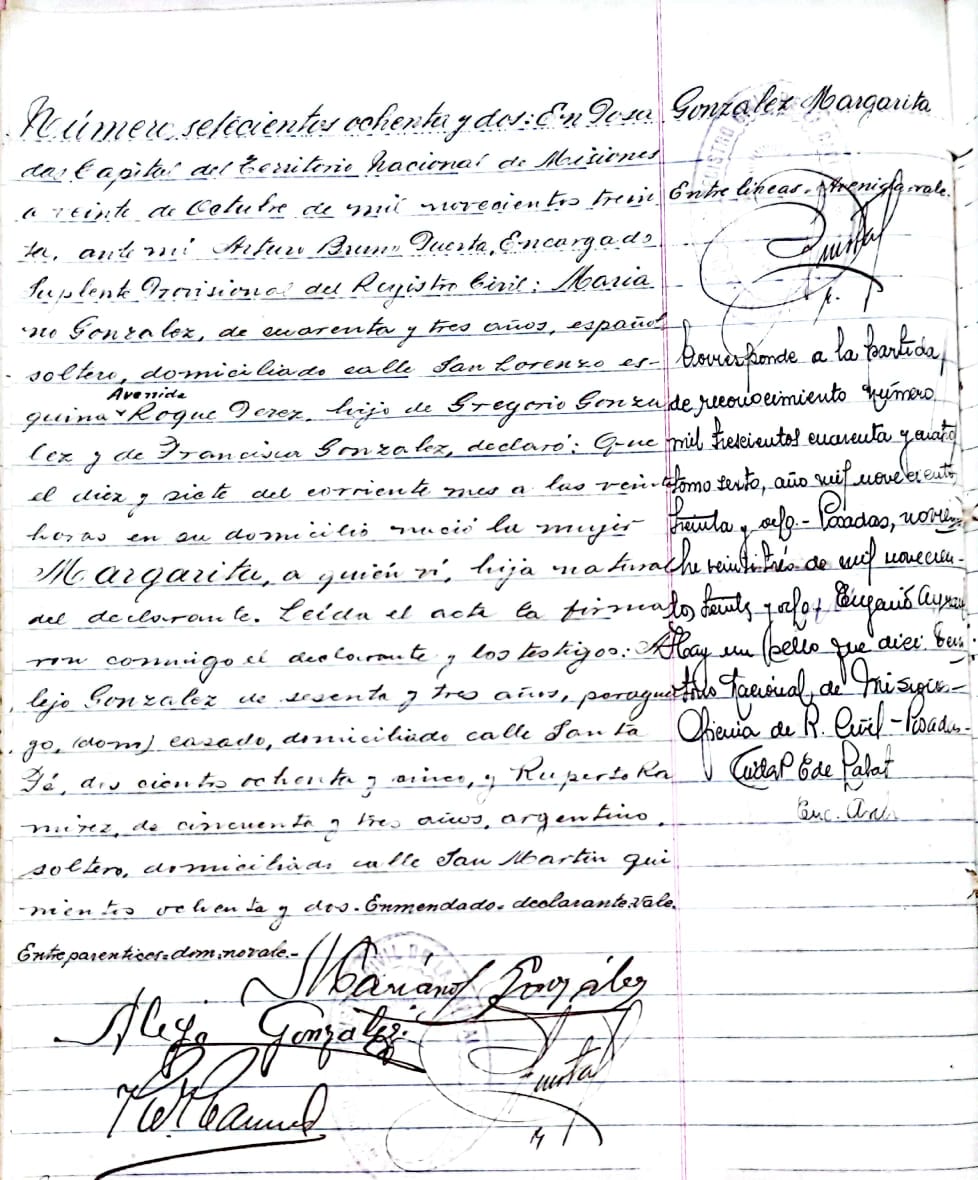 Número setecientos ochenta y dos: En Posa
das Capital del Territorio Nacional de Misiones
a veinte de Octubre de mil novecientos trein
ta, ante mí Arturo Bruno Puerta, Encargado
Suplente Provisional del Registro Civil: Maria
no Gonzalez, de cuarenta y tres años, español
soltero, domiciliado calle San Lorenzo es-
Avenida
quina Roque Perez, hijo de Gregorio Gonza
lez y de Francisca Gonzalez, declaró: Que
el diez y siete del corriente mes a las veinte
horas en su domicilio nació la mujer
Margarita, a quién ví, hija natural
del declarante. Leída el acta la firma
ron conmigo el declarante y los testigos: A
lejo Gonzalez de sesenta y tres años, paragua
yo, (dom) casado, domiciliado calle Santa
Fé, dos cientos ochenta y cinco, y Ruperto Ra
mirez, de cincuenta y tres años, argentino,
soltero, domiciliado calle San Martin qui
nientos ochenta y dos. Enmendado. declarante. Vale.
Entre parentices. dom. no vale.-
Mariano González
Alejo Gonzalez
Gonzalez Margarita
Entre líneas. Avenida. vale.
Corresponde a la partida
de reconocimiento número
mil trescientos cuarenta y cuatro
tomo sexto, año mil novecientos
treinta y ocho.- Posadas, noviem
bre veintitrés de mil novecien-
tos treinta y ocho. Eugenio
Hay un sello que dice: Terri
torio Nacional de Misiones-
Oficina de R. Civil - Posadas-
Enc. Arch.